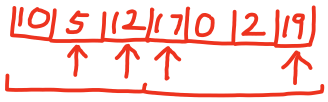 10 5 12 17 0 2 19